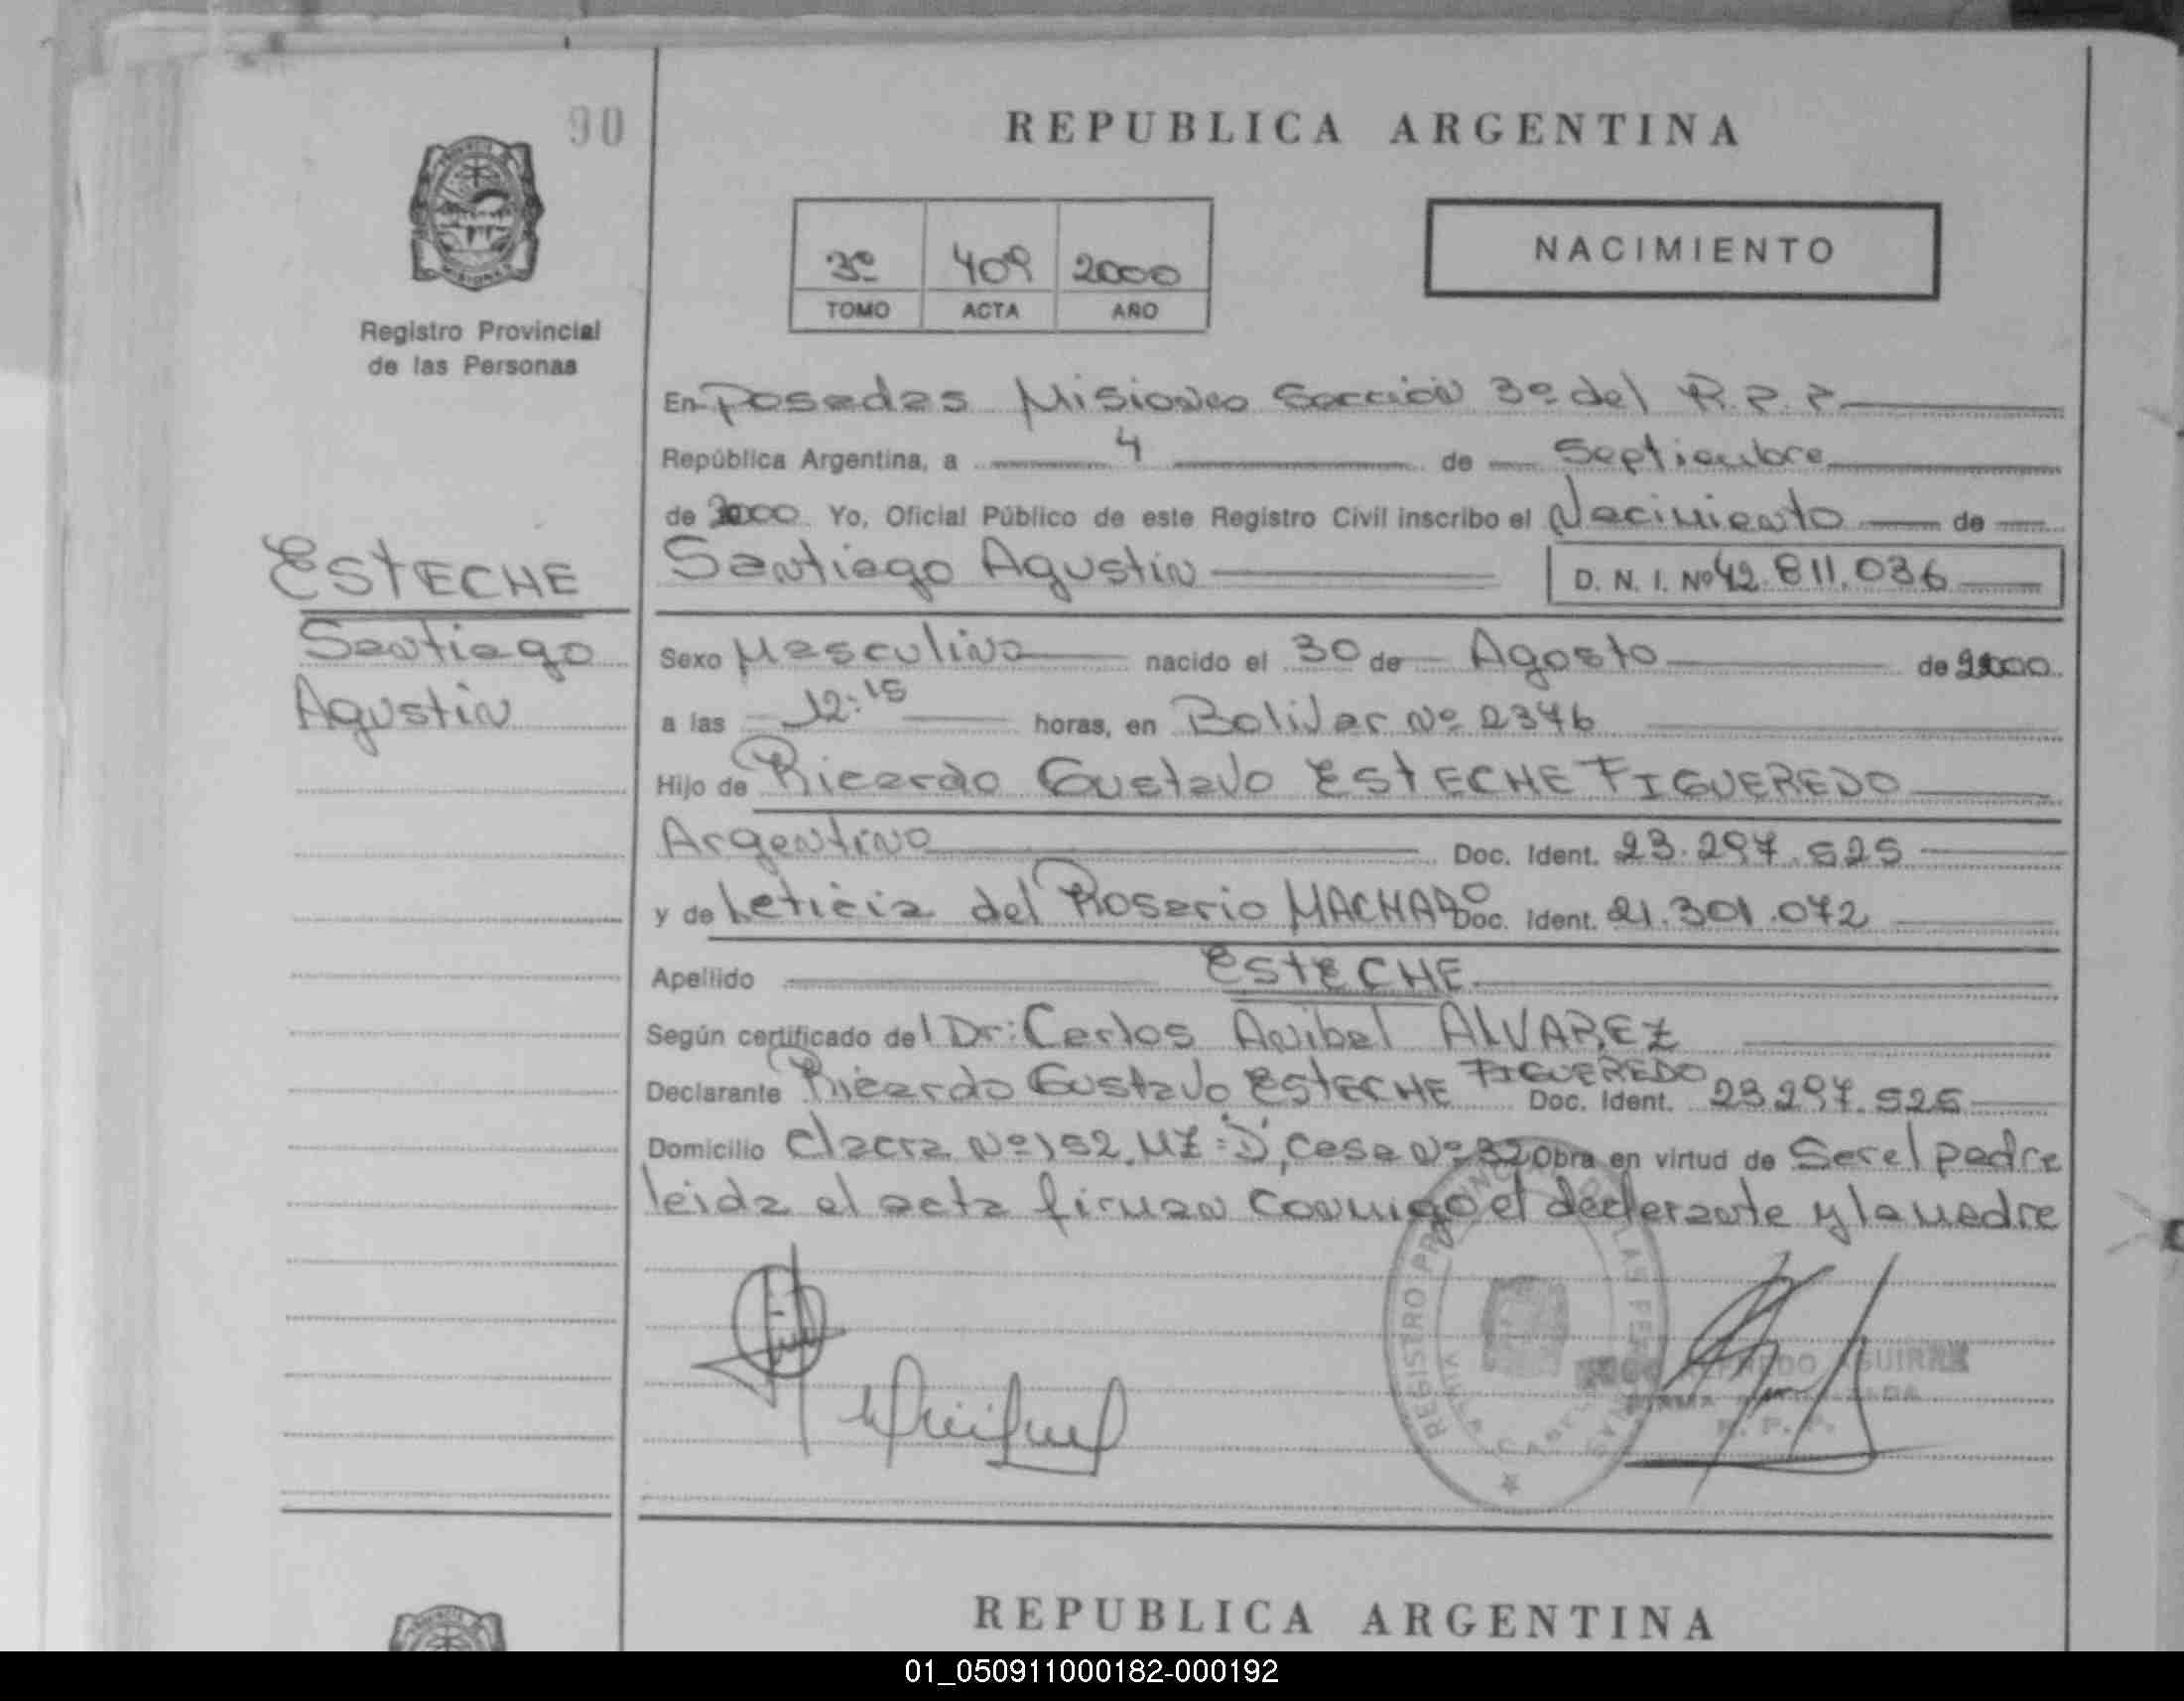 90
REPUBLICA ARGENTINA
3º 409 2000
TOMO ACTA AÑO
NACIMIENTO
Registro Provincial
de las Personas
En Posadas Misiones Sección 3º del R.P.P
República Argentina, a 4 de Septiembre
de 2000 Yo, Oficial Público de este Registro Civil inscribo el Nacimiento de
ESTECHE
Santiago Agustin D. N. I. Nº 42.811.036
Santiago
Sexo Masculino nacido el 30 de Agosto de 2000
Agustin
a las 12:15 horas, en Bolivar Nº 2346
Hijo de Ricardo Gustavo ESTECHE FIGUEREDO
Argentino Doc. Ident. 23.297.525
y de Leticia del Rosario MACHADO Doc. Ident. 21.301.072
Apellido ESTECHE
Según certificado del Dr: Carlos Anibal ALVAREZ
Declarante Ricardo Gustavo ESTECHE FIGUEREDO Doc. Ident. 23.297.525
Domicilio Chacra Nº 152, MZ: D, Casa Nº 32 Obra en virtud de Ser el padre
leida el acta firman conmigo el declarante y la madre
REGISTRO LAS
AGUIRRE
R. P. P.
REPUBLICA ARGENTINA
01_050911000182-000192